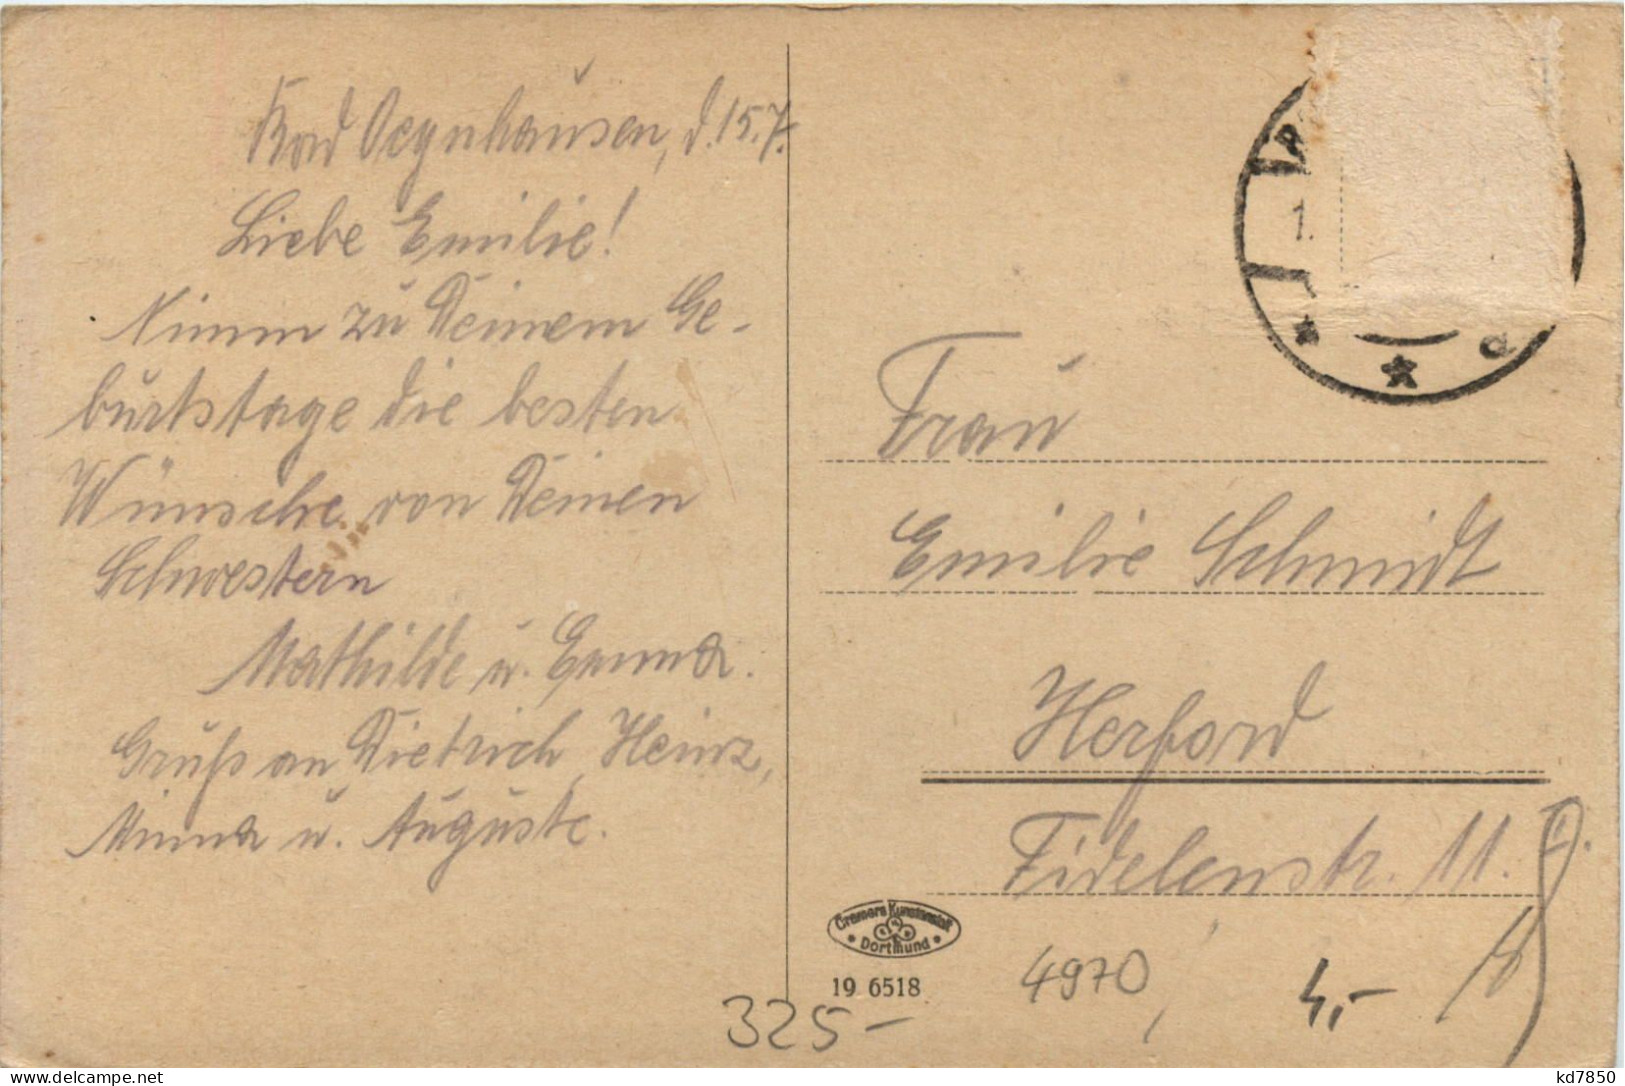 Bad Oeynhausen, d. 15.7.
Liebe Emilie!
Nimm zu Deinem Ge-
burtstage die besten
Wünsche von Deinen
Schwestern
Mathilde u. Emma.
Gruß an Dietrich, Heinz,
Minna u. Auguste.
Frau
Emilie Schmidt
Herford
Fidelenstr. 11. I.
Cramers Kunstanstalt
Dortmund
19 6518
4970
4,-
325-
1.
d
delcampe.net
kd7850